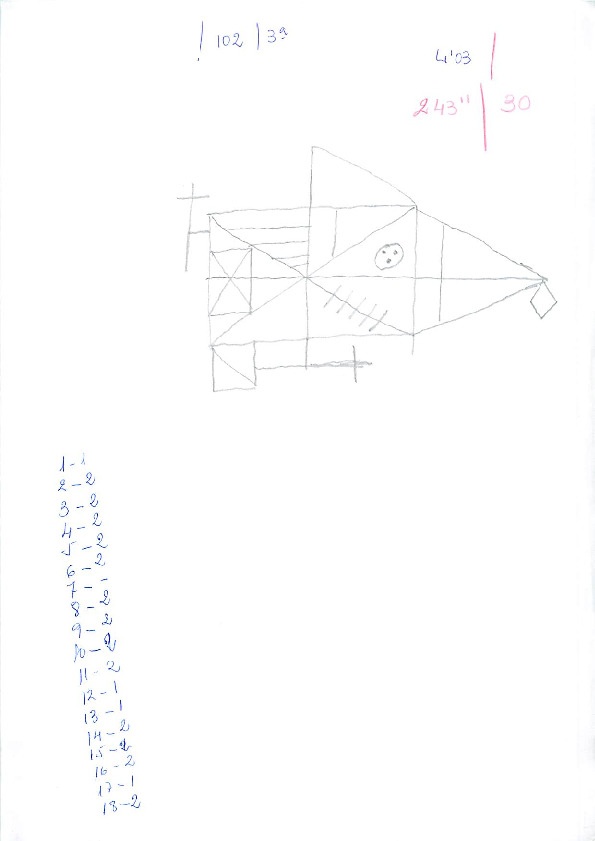 102 | 3ª
4'03 |
243" | 30
1-1
2-2
3-2
4-2
5-2
6-2
7--
8-2
9-2
10-2
11-2
12-1
13-1
14-2
15-2
16-2
17-1
18-2